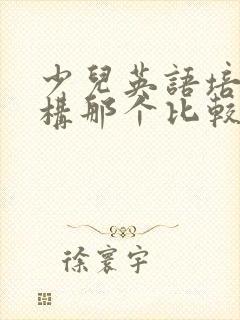 少兒英語培
構那个比較
徐寰宇